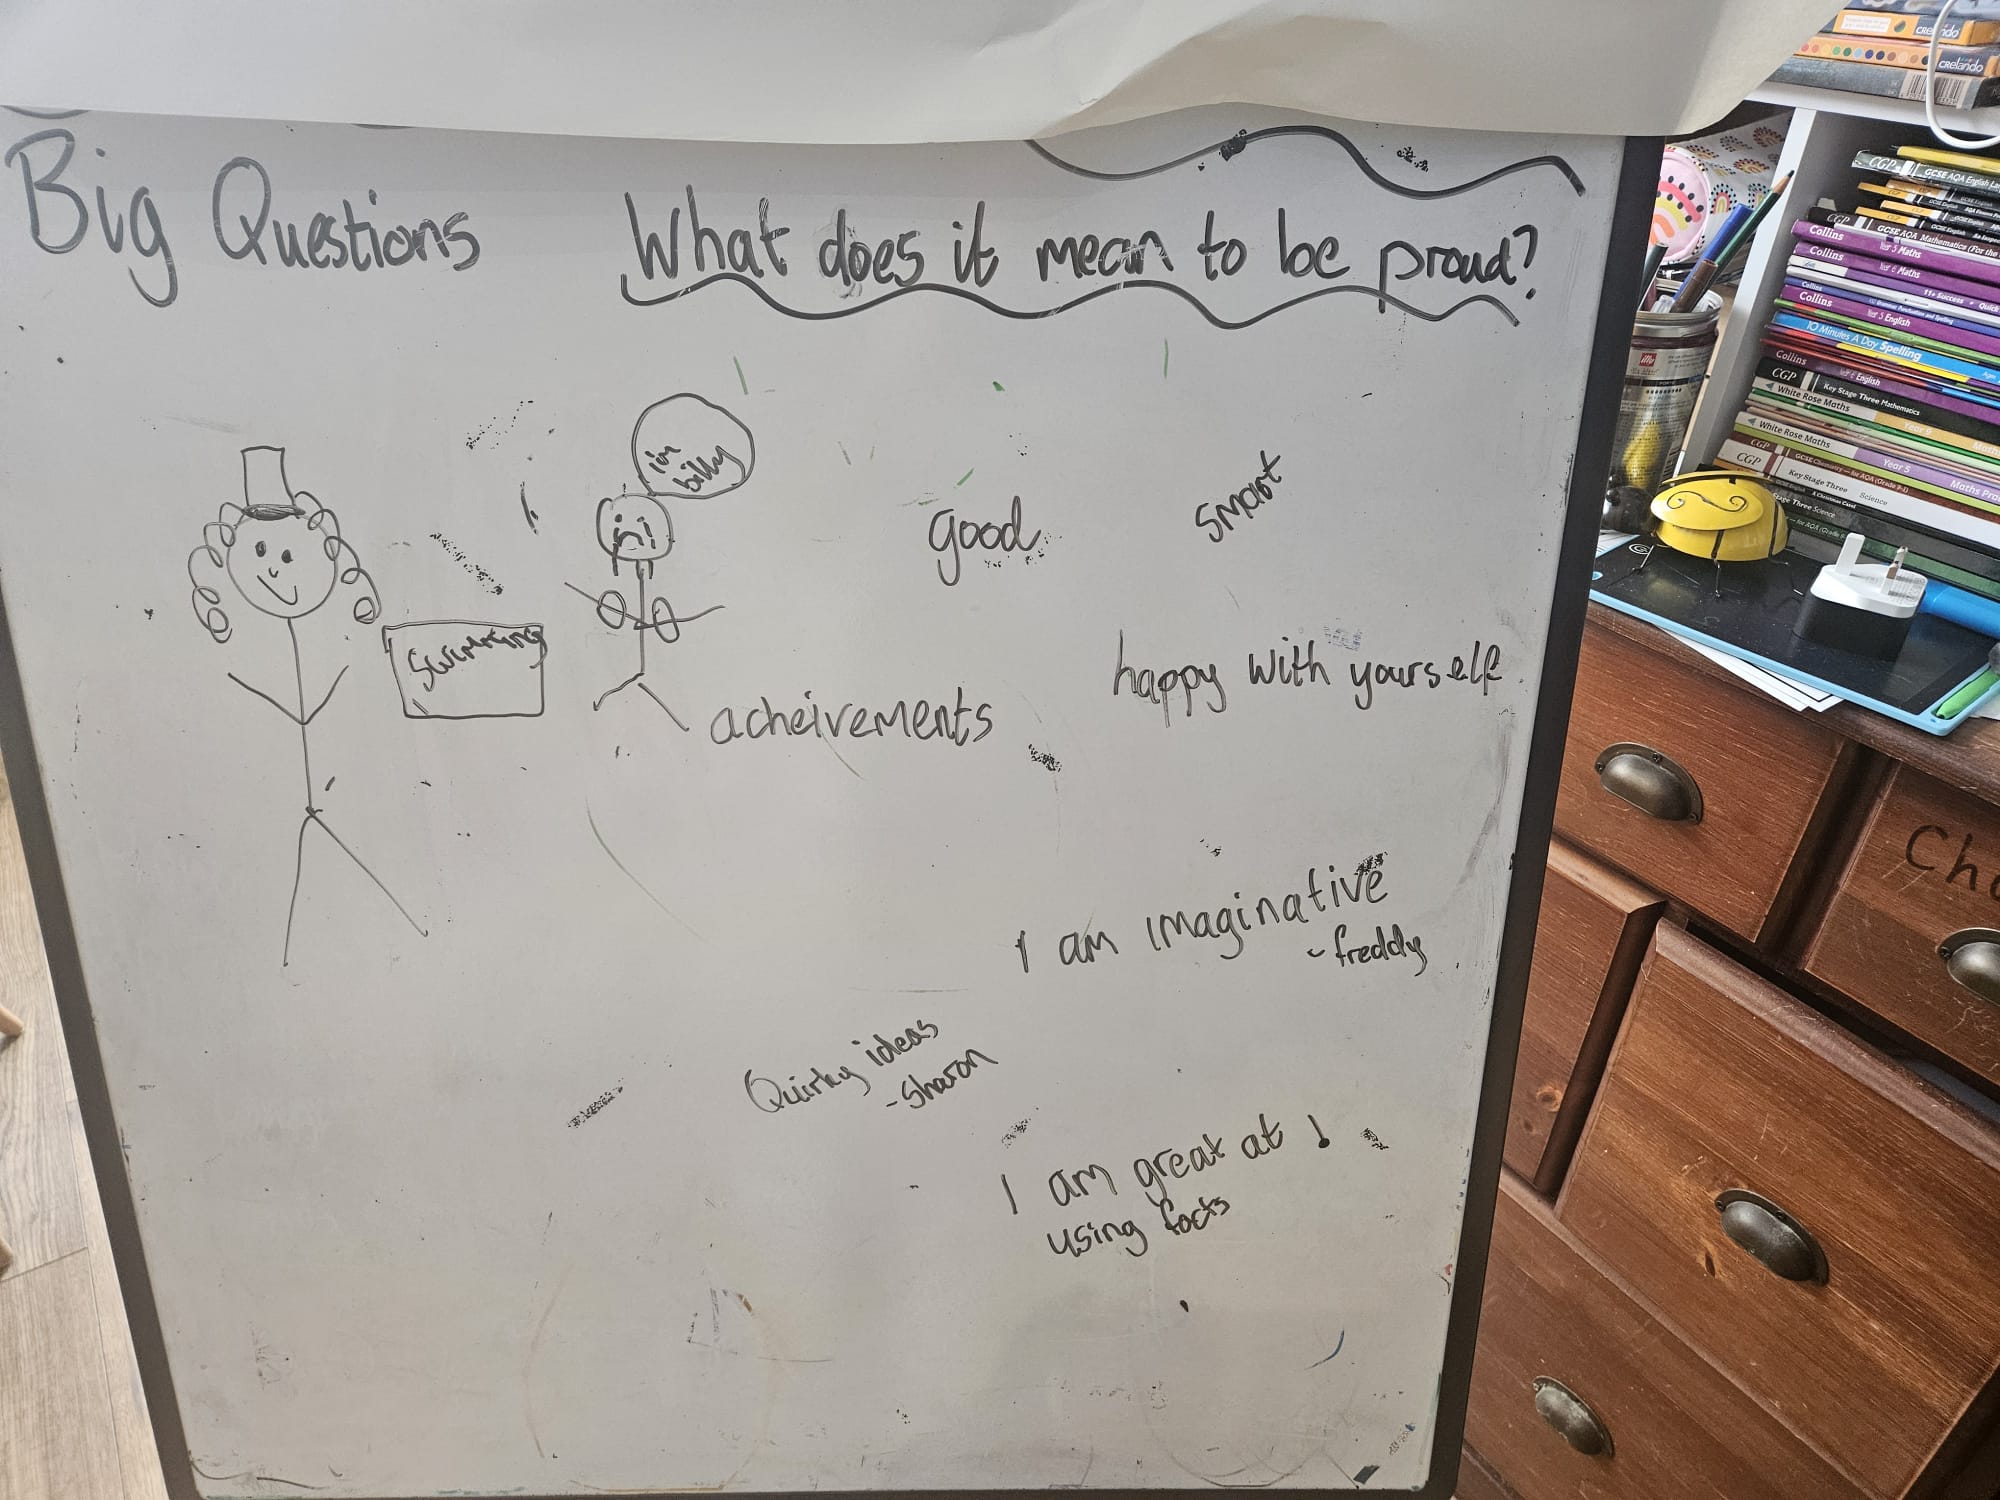 Big Questions
What does it mean to be proud?
i'm
billy
swimming
good
smart
acheivements
happy with yourself
I am imaginative
- freddy
Quirky ideas
- Sharon
I am great at !
using facts
Crelando
Crelando
CGP
GCSE AQA English
CGP
GCSE AQA Mathematics (For the
Collins
Year 5 Maths
Collins
Year 6 Maths
Collins
11+ Success
Collins
Year 5 English
10 Minutes A Day Spelling
Collins
Year 6 English
CGP
Key Stage Three Mathematics
White Rose Maths
Year 9
White Rose Maths
Year 5
Maths
CGP
GCSE Chemistry
Key Stage Three Science
A Christmas Carol
Stage Three Science
illy
Cha